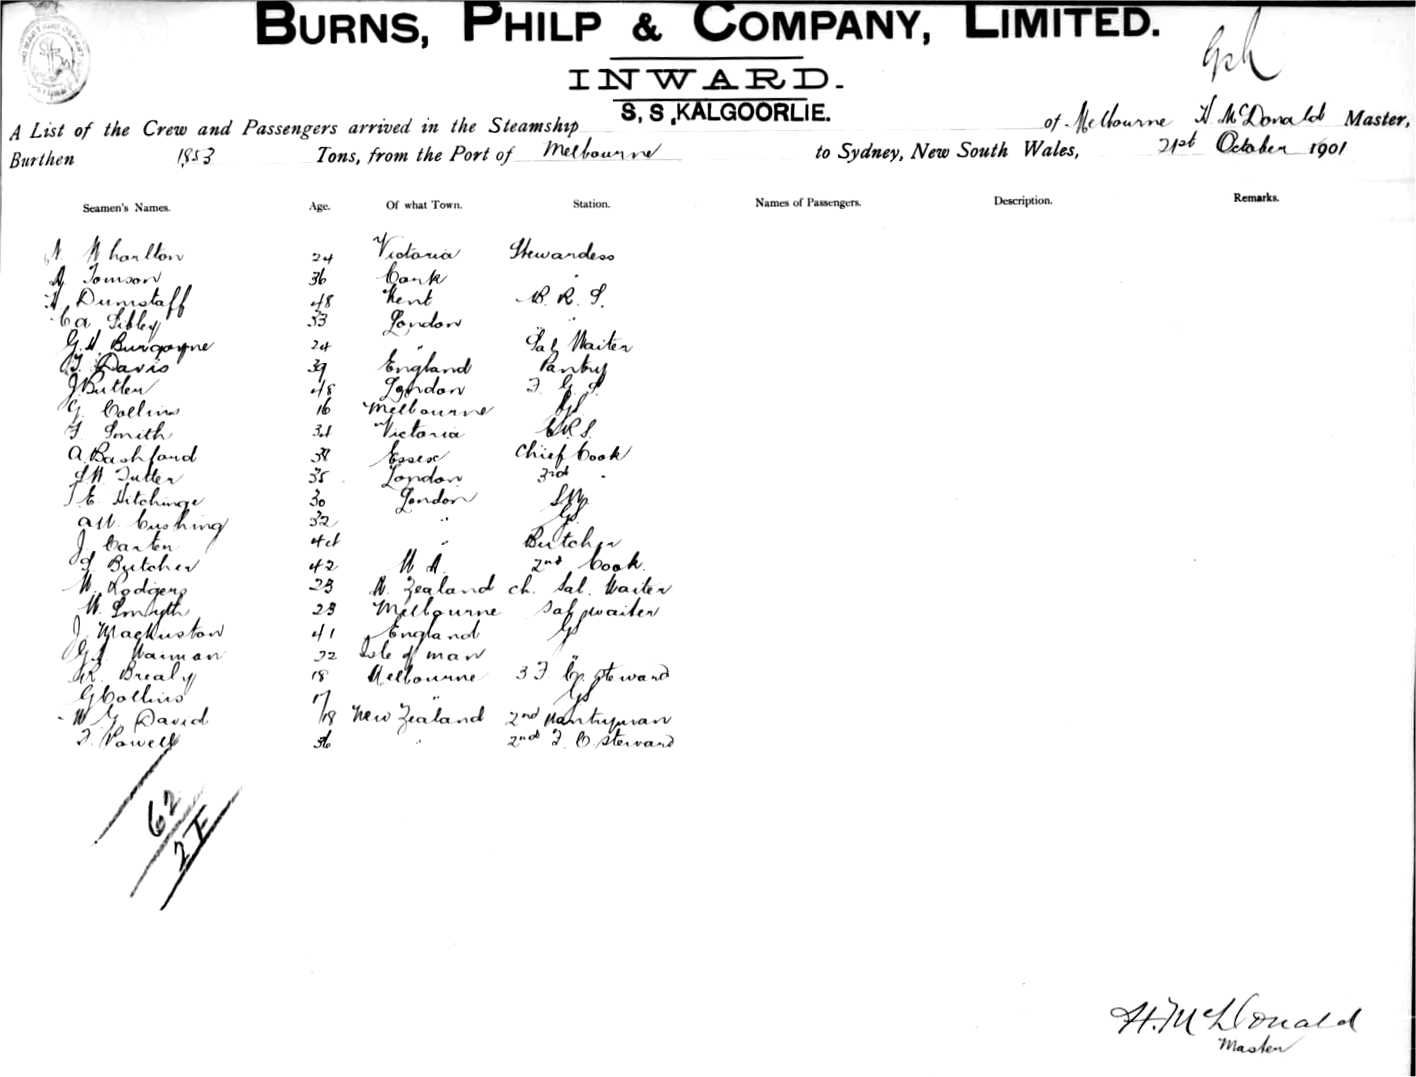 BURNS, PHILP & COMPANY, LIMITED.
INWARD.
S.S. KALGOORLIE.
A List of the Crew and Passengers arrived in the Steamship of Melbourne H McDonald Master,
Burthen 1853 Tons, from the Port of Melbourne to Sydney, New South Wales, 21st October 1901
Seamen's Names. Age. Of what Town. Station. Names of Passengers. Description. Remarks.
Wharlton 24 Victoria Stewardess
Tomson 36 "
Dumstaff 48 Kent B. R. S.
Ca Sibley 33 London "
G. H. Burgoyne 24 " Sal Waiter
Davis 39 England Pantry
J Butler 48 London
G. Collins 16 Melbourne GS
Smith Victoria
A. Bashford 38 Essex Chief Cook
Tutler 35 London 3rd "
E. Hitchinge 30 London
A W. Cushing 32 " GS
J Carter 44 " Butcher
Butcher 42 2nd Cook.
W. Rodgers 23 N. Zealand ch. Sal. Waiter
W. Smyth 23 Melbourne Sal waiter
J MacKuston 41 England GS
Waiman Isle of man "
Brealy 18 Melbourne 3 Steward
G Collins 17 " GS
W G David 18 New Zealand 2nd Pantryman
F. Powell 36 " 2nd F. C Steward
62
2 F
H. McDonald
Master